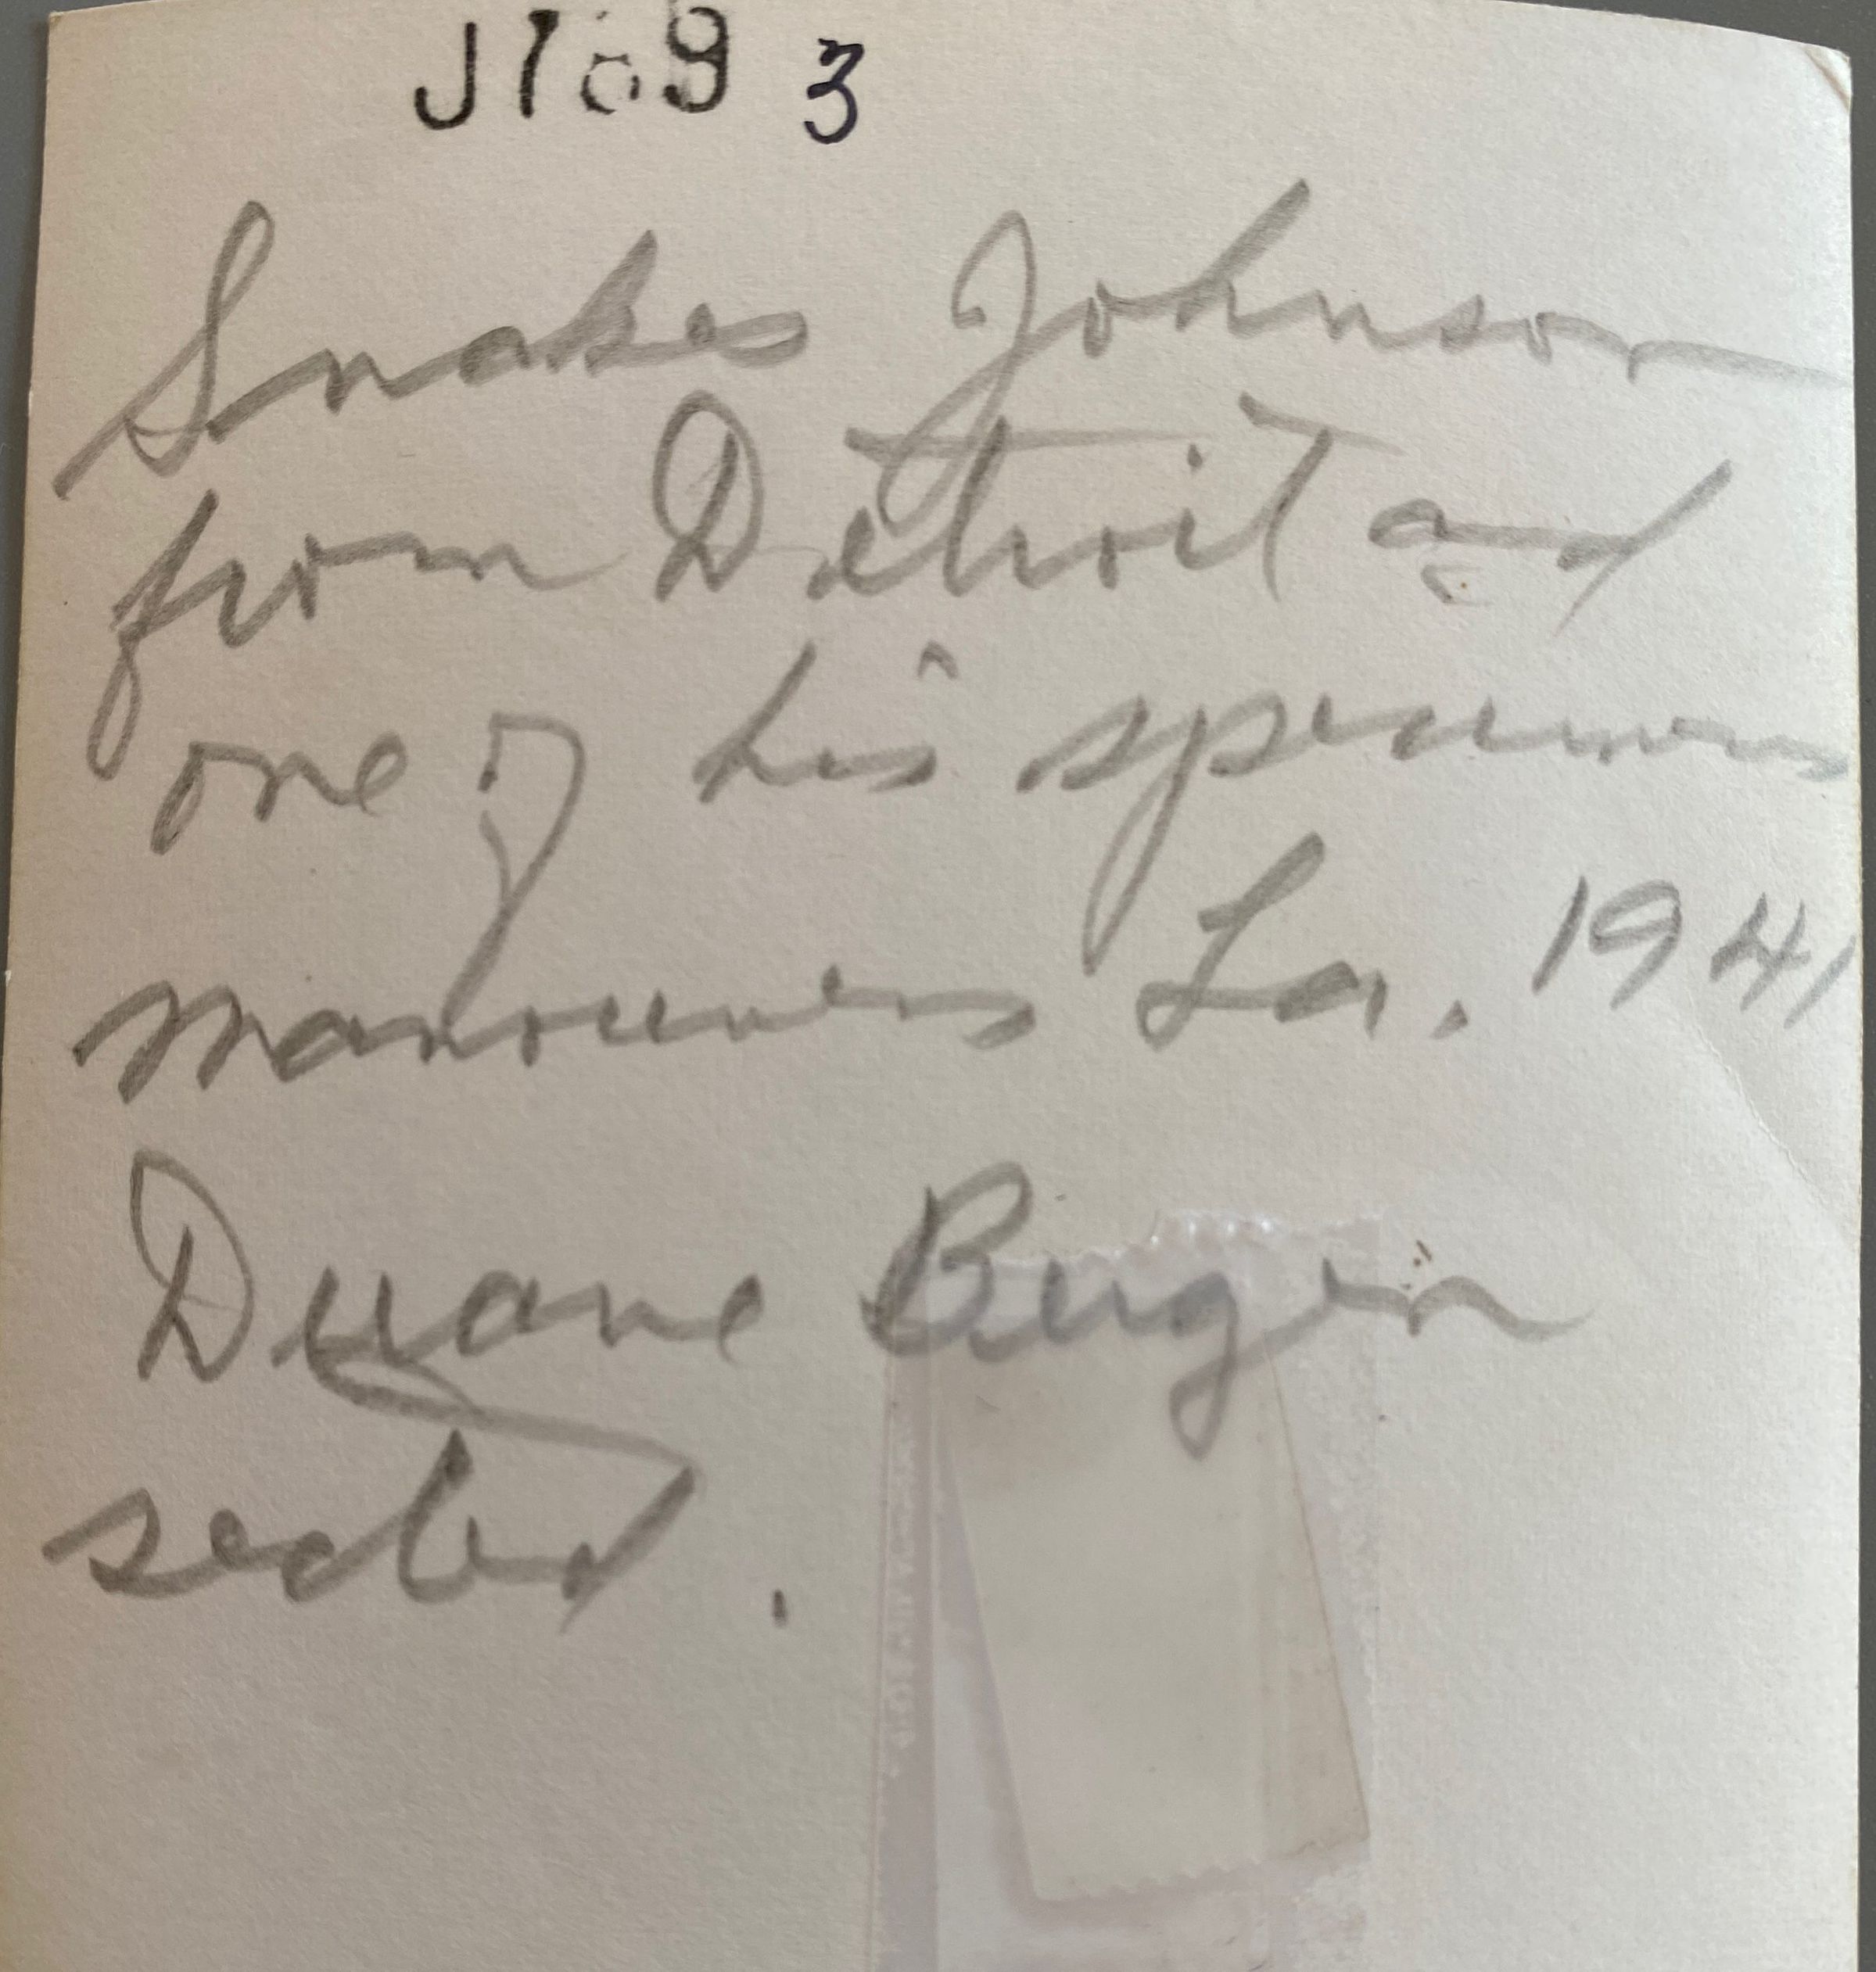 J169 3
Snakes Johnson
from Detroit and
one of his specimens
Manouvers La. 1941
Duane Bergen
seated.